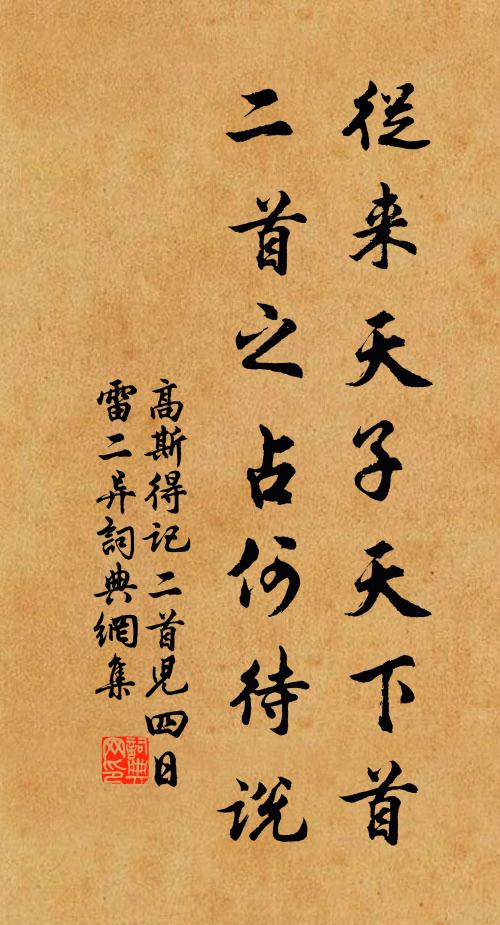 從来天子天下首
二首之占何待説
高斯得記二首児四日
雷二异詞典網集
詞典
网印